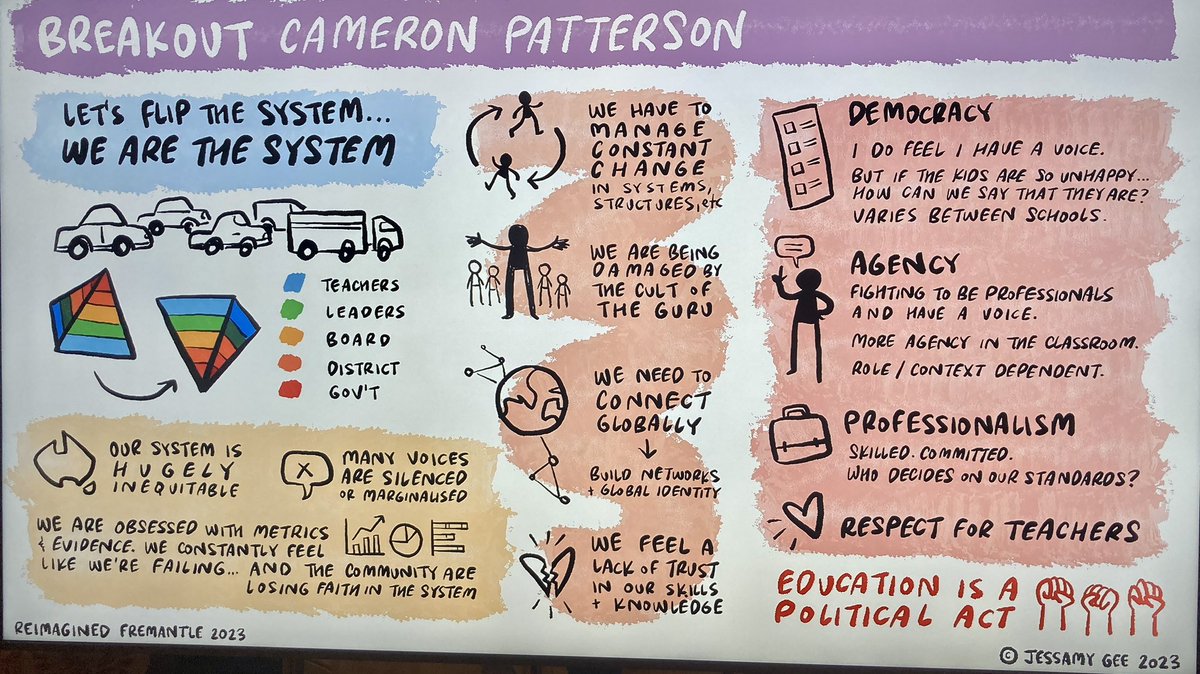 BREAKOUT CAMERON PATTERSON
LET'S FLIP THE SYSTEM...
WE ARE THE SYSTEM
TEACHERS
LEADERS
BOARD
DISTRICT
GOV'T
OUR SYSTEM IS
HUGELY
INEQUITABLE
MANY VOICES
ARE SILENCED
OR MARGINALISED
WE ARE OBSESSED WITH METRICS
& EVIDENCE. WE CONSTANTLY FEEL
LIKE WE'RE FAILING... AND THE COMMUNITY ARE
LOSING FAITH IN THE SYSTEM
WE HAVE TO
MANAGE
CONSTANT
CHANGE
IN SYSTEMS,
STRUCTURES, etc
WE ARE BEING
DAMAGED BY
THE CULT OF
THE GURU
WE NEED TO
CONNECT
GLOBALLY
BUILD NETWORKS
+ GLOBAL IDENTITY
WE FEEL A
LACK OF TRUST
IN OUR SKILLS
+ KNOWLEDGE
DEMOCRACY
I DO FEEL I HAVE A VOICE.
BUT IF THE KIDS ARE SO UNHAPPY...
HOW CAN WE SAY THAT THEY ARE?
VARIES BETWEEN SCHOOLS.
AGENCY
FIGHTING TO BE PROFESSIONALS
AND HAVE A VOICE.
MORE AGENCY IN THE CLASSROOM.
ROLE / CONTEXT DEPENDENT.
PROFESSIONALISM
SKILLED. COMMITTED.
WHO DECIDES ON OUR STANDARDS?
RESPECT FOR TEACHERS
EDUCATION IS A
POLITICAL ACT
REIMAGINED FREMANTLE 2023
© JESSAMY GEE 2023